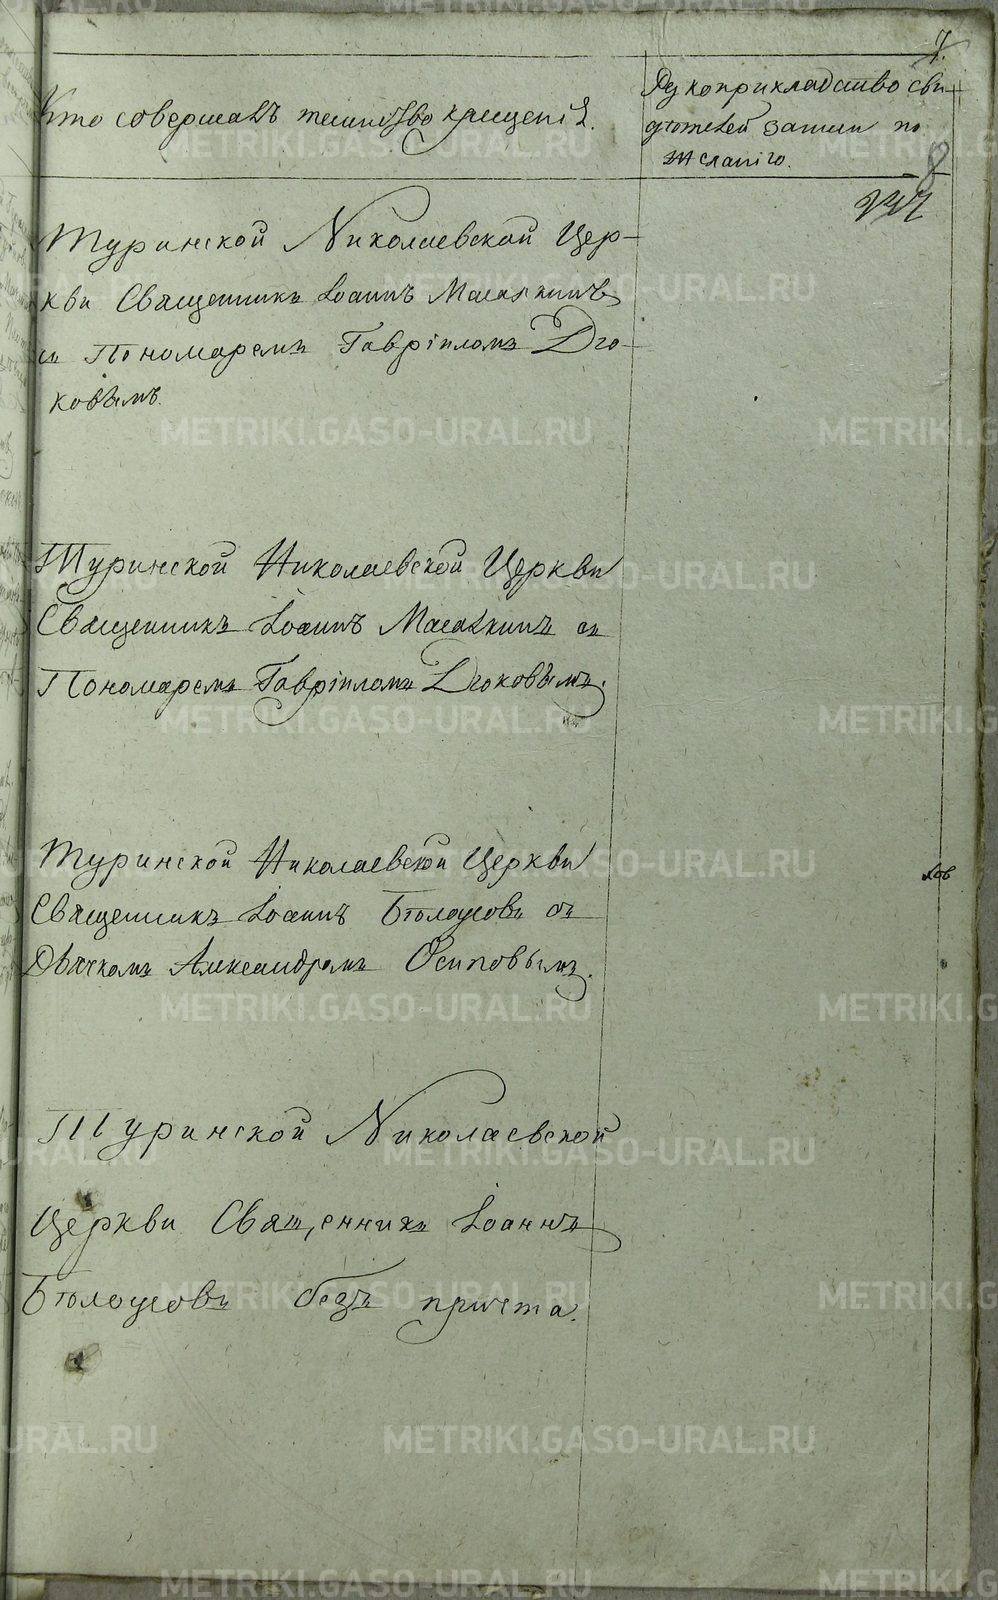 7.
Кто совершалъ таинство крещенія.
Рукоприкладство сви-
дѣтелей записи по
желанію.
8
Туринской Николаевской Цер-
кви Священникъ Іоаннъ Масалкинъ
съ Пономаремъ Гавріиломъ Дю-
ковымъ.
Туринской Николаевской Церкви
Священникъ Іоаннъ Масалкинъ съ
Пономаремъ Гавріиломъ Дюковымъ.
Туринской Николаевской Церкви
Священникъ Іоаннъ Бѣлоусовъ съ
Дьячкомъ Александромъ Осиповымъ.
Туринской Николаевской
Церкви Священникъ Іоаннъ
Бѣлоусовъ безъ причта.
METRIKI.GASO-URAL.RU